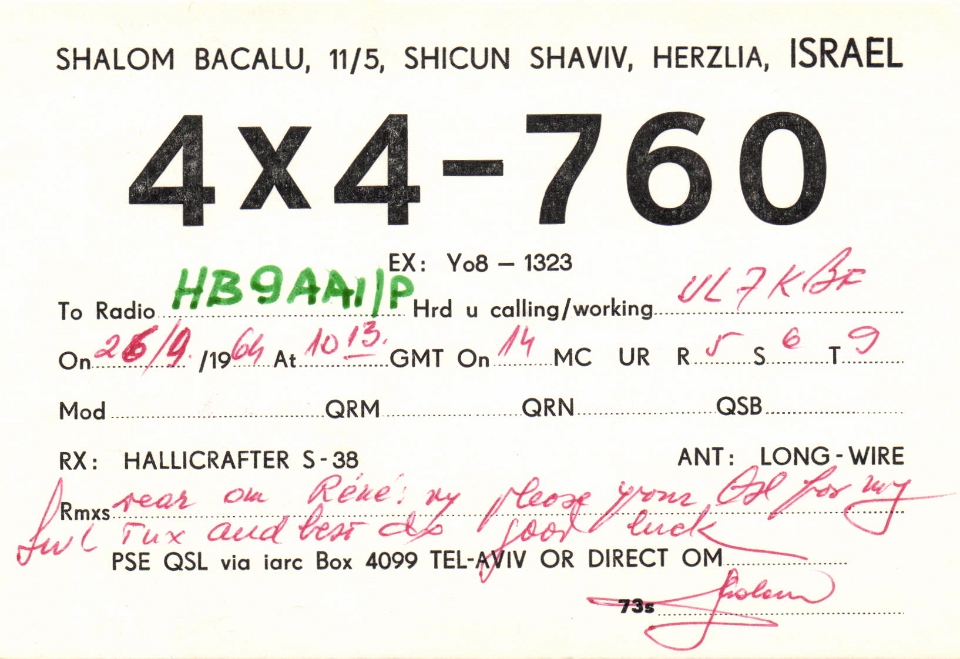 SHALOM BACALU, 11/5, SHICUN SHAVIV, HERZLIA, ISRAEL
4X4-760
EX: Yo8 – 1323
To Radio HB9AAI/P Hrd u calling/working UL7KBF
On 26/9. /1964 At 10 13. GMT On 14 MC UR R 5 S 6 T 9
Mod QRM QRN QSB
RX: HALLICRAFTER S-38 ANT: LONG-WIRE
Rmxs dear om Réné: my please your Qsl for my
Swl Tnx and best dx good luck
PSE QSL via iarc Box 4099 TEL-AVIV OR DIRECT OM
73s Shalom